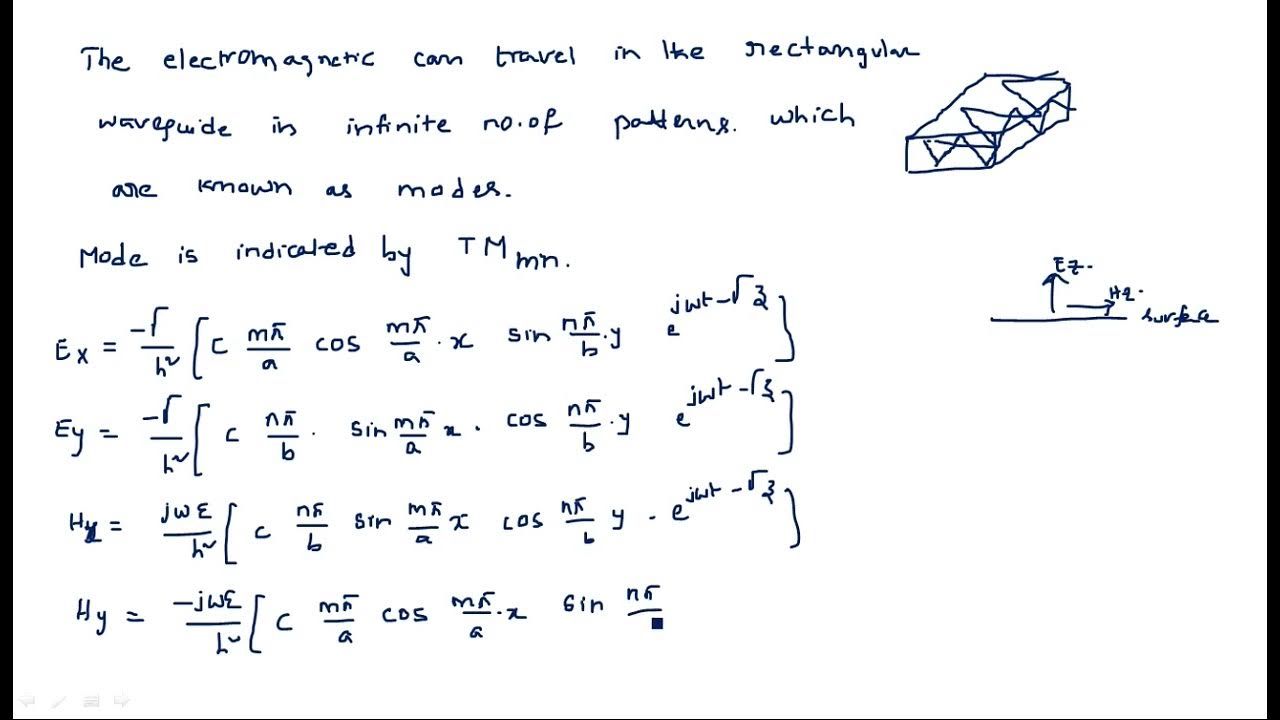 The electromagnetic can travel in the rectangular
waveguide in infinite no.of patterns. which
are known as modes.
Mode is indicated by TM_mn.
Ez.
Hz.
surface
E_x = -Γ/h² [ C mπ/a cos mπ/a . x sin nπ/b . y e^(jωt-Γz) ]
E_y = -Γ/h² [ C nπ/b . sin mπ/a x . cos nπ/b . y e^(jωt-Γz) ]
H_x = jωε/h² [ C nπ/b sin mπ/a x cos nπ/b y . e^(jωt-Γz) ]
H_y = -jωε/h² [ C mπ/a cos mπ/a . x sin nπ/